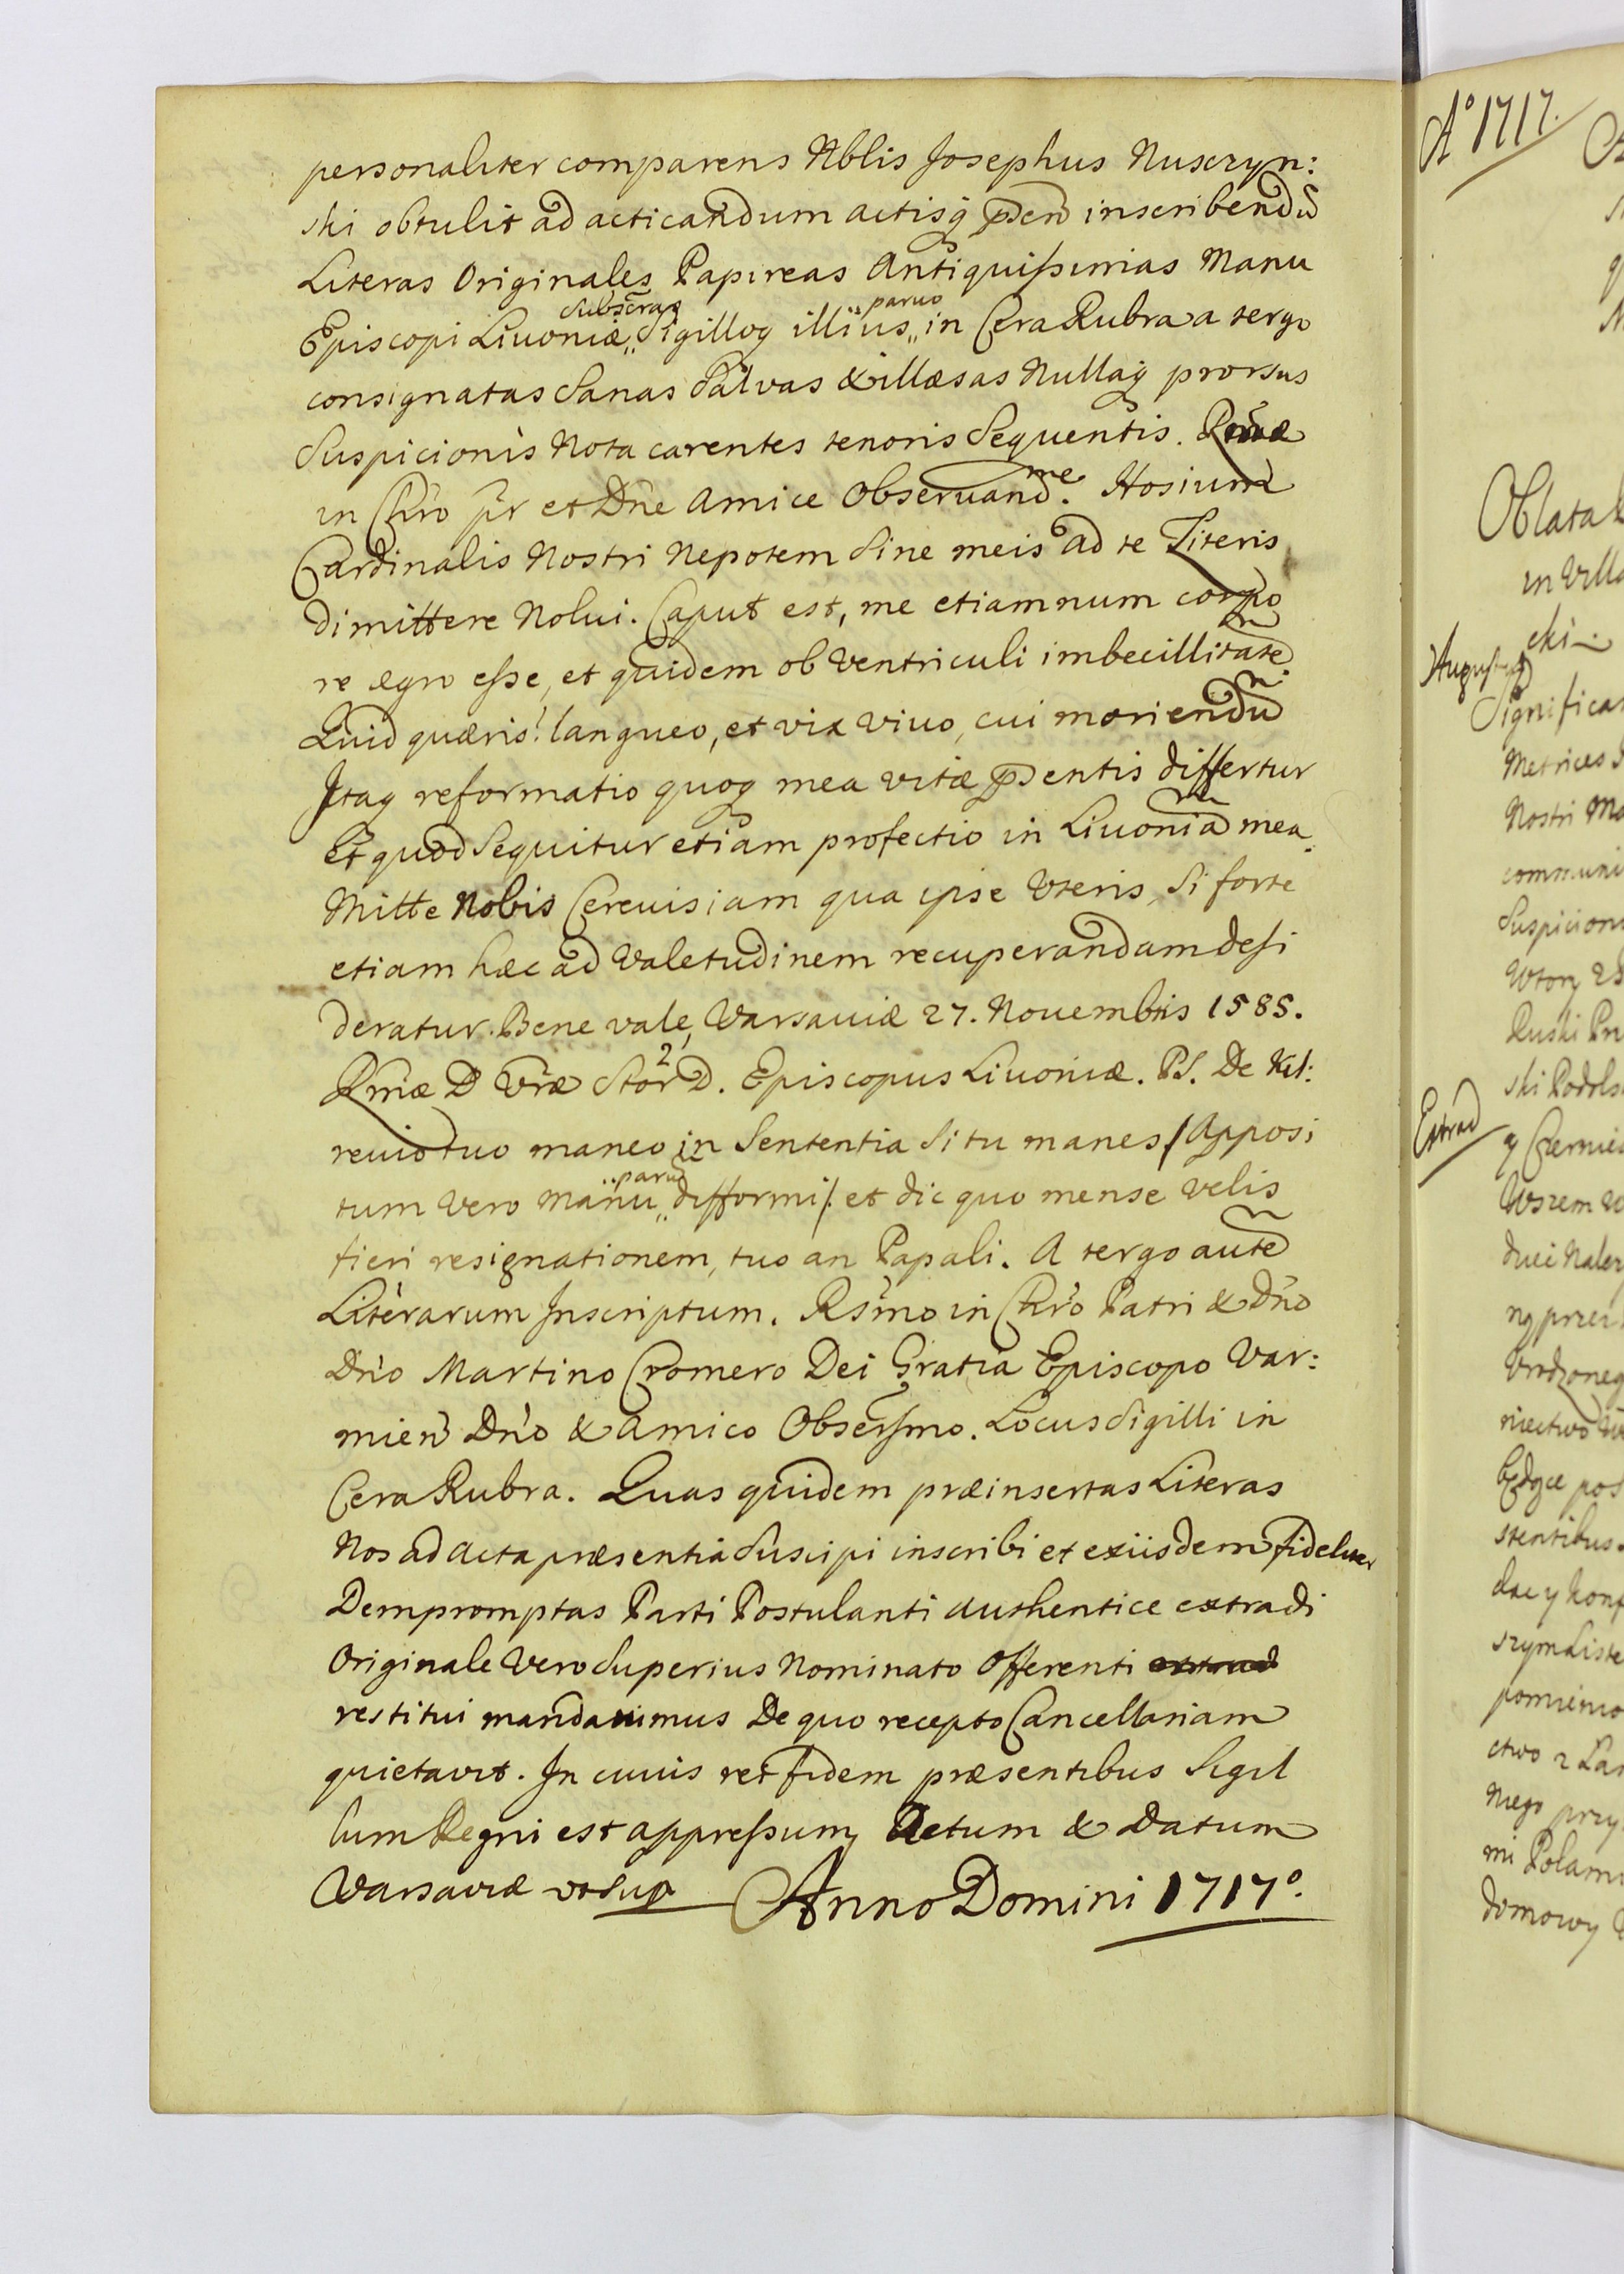 personaliter comparens Nblis Josephus Nuszryn:
ski obtulit ad acticandum actisq pñ inscribendũ
Literas Originales Papireas Antiquissimas Manu
Episcopi Livoniæ „Subscras Sigilloq illius „paruo in Cera Rubra a tergo
consignatas Sanas Salvas & illæsas Nullaq prorsus
Suspicionis Nota carentes tenoris Sequentis. Rmæ
in Chro pr et Dñe Amice Obseruandme. Hosium
Cardinalis Nostri Nepotem Sine meis ad te Literis
dimittere Nolui. Caput est, me etiamnum corpo
re ægro esse, et quidem ob Ventriculi imbecillitatẽ
Quid quæris! langueo, et vix viuo, cui moriendũ
Itaq reformatio quoq mea vitæ pentis differtur
Et quod Sequitur etiam profectio in Liuoniã mea.
Mitte Nobis Cereuisiam qua ipse Vteris, Si forte
etiam hæc ad Valetudinem recuperandam desi
deratur. Bene vale, Varsauiæ 27. Nouembris 1585.
Rmæ D Vræ Stor D. Episcopus Liuoniæ. PS. De Ket:
reuio tuo maneo in Sententia Si tu manes / Apposi
tum Vero Manu „parũ difformi /. et dic quo mense velis
fieri resignationem, tuo an Papali. A tergo autẽ
Literarum Inscriptum. Rsmo in Chro Patri & Dño
Dño Martino Cromero Dei Gratia Episcopo Var:
mieñ Dño & Amico Obserſmo. Locus Sigilli in
Cera Rubra. Quas quidem præinsertas Literas
Nos ad Acta præsentia Suscipi inscribi et exiisdem fideliter
Demp​romptas Parti Postulanti Authentice extradi
Originale Vero Superius Nominato Offerenti
restitui mandauimus De quo recepto Cancellariam
quietavit. In cuius rei fidem præsentibus Sigil
lum Regni est appressum, Actum & Datum
Varsaviæ vt Sup Anno Domini 1717º.
Aº 1717.
Oblata
in Villa
cki
August
Significa
Metrices
Nostri Ma
communi
Suspicion
Wtory
Ruski Pru
ski Podols
Extrad
y Czernie
Wszem
Nalez
ny przez
Vrodzoneg
Będące pos
stentibus
dne y konf
szym Liste
pomienio
ctwo z
Nego przy
mi Polami
domowy